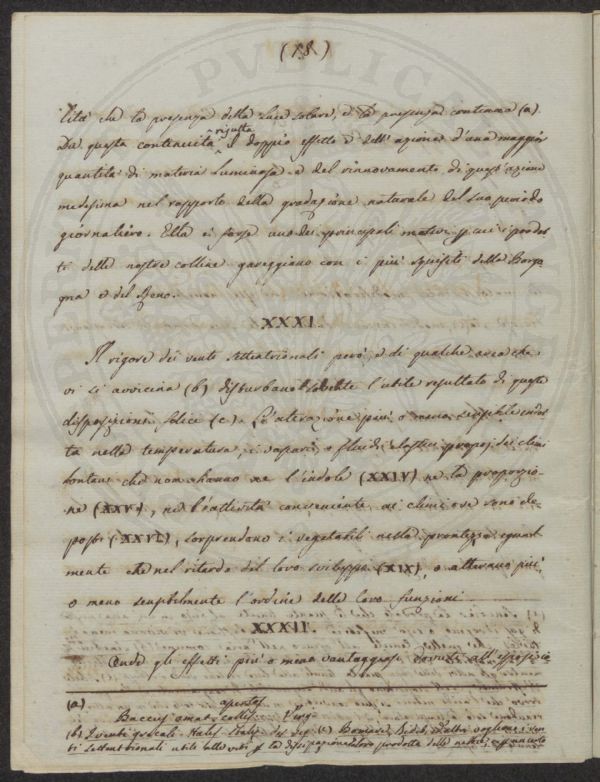 (18)
lità che la presenza della Luce solare, è la presenza continua (a).
Da questa continuità risulta il doppio effetto e dell'azione d'una maggior
quantità di materia Luminosa e del rinnovamento di quest'azione
medesima nel rapporto della gradazione naturale del suo periodo
giornaliero. Ella è forse uno dei principali motivi p cui i prodot
ti delle nostre colline gareggiano con i più squisiti della Borgo
gna e del Reno.
XXXI.
Il rigore dei venti settentrionali però, e di qualche area che
vi si avvicina (b) disturbano sovente l'utile resultato di queste
disposizioni felici (c). L'alterazione più o meno sensibile indot
ta nella temperatura, i vapori, o fluidi elastici propri dei climi
lontani che non hanno ne l'indole (XXIV) ne la proporzio
ne (XXV), ne l'attività conveniente ai climi ove sono de
posti (XXVI), sorprendono i vegetabili nella prontezza egual
mente che nel ritardo del loro sviluppo (XIX), o alterano più
o meno sensibilmente l'ordine delle loro funzioni.
XXXII.
Onde gli effetti più o meno vantaggiosi dovuti all'esposizio
(a)
Baccus amat colles apertos Virg
(b) I venti grecali. Hales Stat.
(c) Bomare
ti settentrionali utile alle viti p la dissipazione